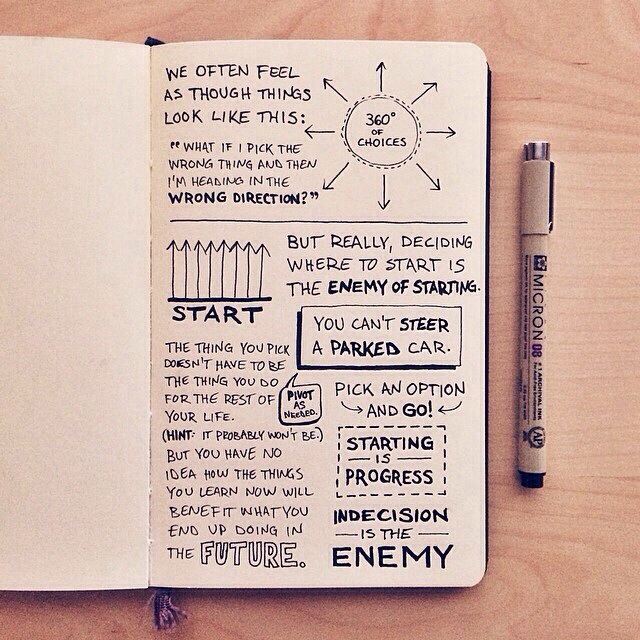 WE OFTEN FEEL
AS THOUGH THINGS
LOOK LIKE THIS:
"WHAT IF I PICK THE
WRONG THING AND THEN
I'M HEADING IN THE
WRONG DIRECTION?"
360°
OF
CHOICES
START
BUT REALLY, DECIDING
WHERE TO START IS
THE ENEMY OF STARTING.
YOU CAN'T STEER
A PARKED CAR.
THE THING YOU PICK
DOESN'T HAVE TO BE
THE THING YOU DO
FOR THE REST OF
YOUR LIFE.
(HINT: IT PROBABLY WON'T BE.)
BUT YOU HAVE NO
IDEA HOW THE THINGS
YOU LEARN NOW WILL
BENEFIT WHAT YOU
END UP DOING IN
THE FUTURE.
PIVOT
AS
NEEDED.
PICK AN OPTION
AND GO!
STARTING
IS
PROGRESS
INDECISION
IS THE
ENEMY
MICRON 08
#1 ARCHIVAL INK